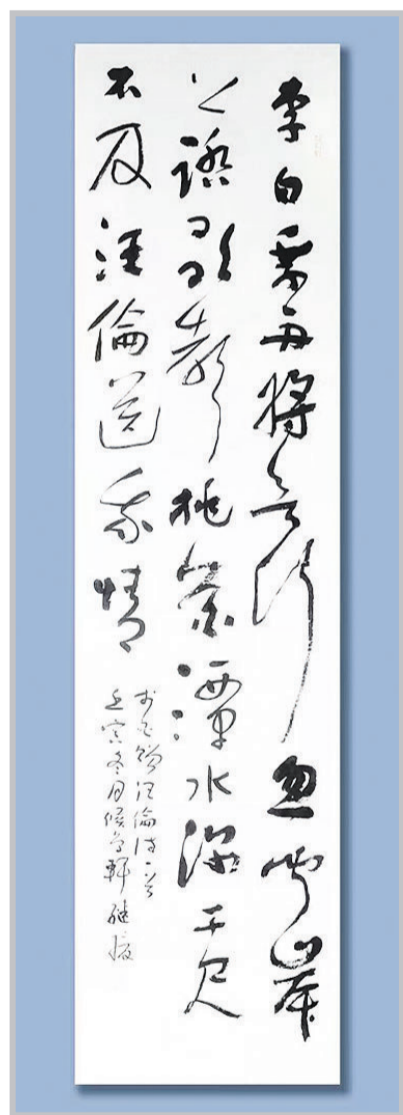 李白乘舟將欲行忽聞岸
上踏歌聲桃花潭水深千尺
不及汪倫送我情
白贈汪倫詩一首
壬寅冬月